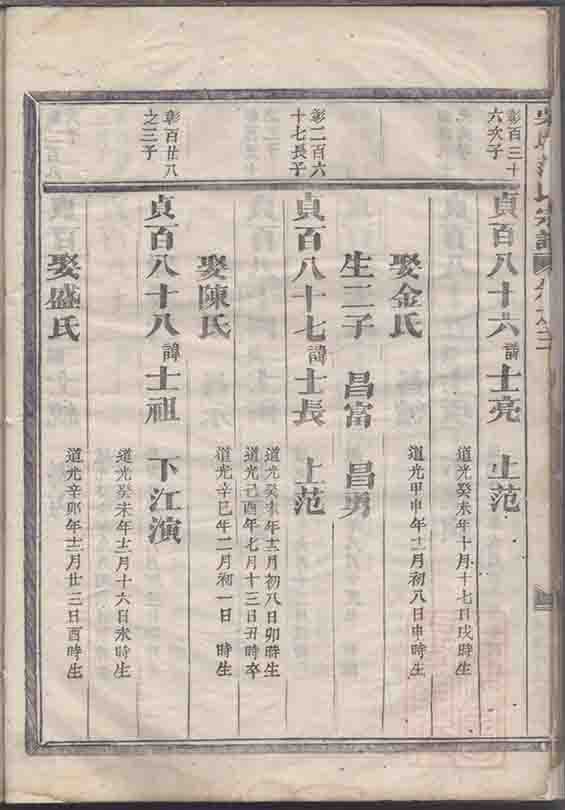 彰百三十
六次子
貞百八十六 諱 士亮 上范
道光癸未年十月十七日戌時生
娶金氏
道光甲申年十二月初八日申時生
生二子 昌富 昌勇
彰二百六
十七長子
貞百八十七 諱 士長 上范
道光癸未年十二月初八日卯時生
道光己酉年七月十三日丑時卒
娶陳氏
道光辛巳年二月初一日 時生
彰百廿八
之三子
貞百八十八 諱 士祖 下江演
道光癸未年十二月十六日亥時生
娶盛氏
道光辛卯年十二月廿三日酉時生